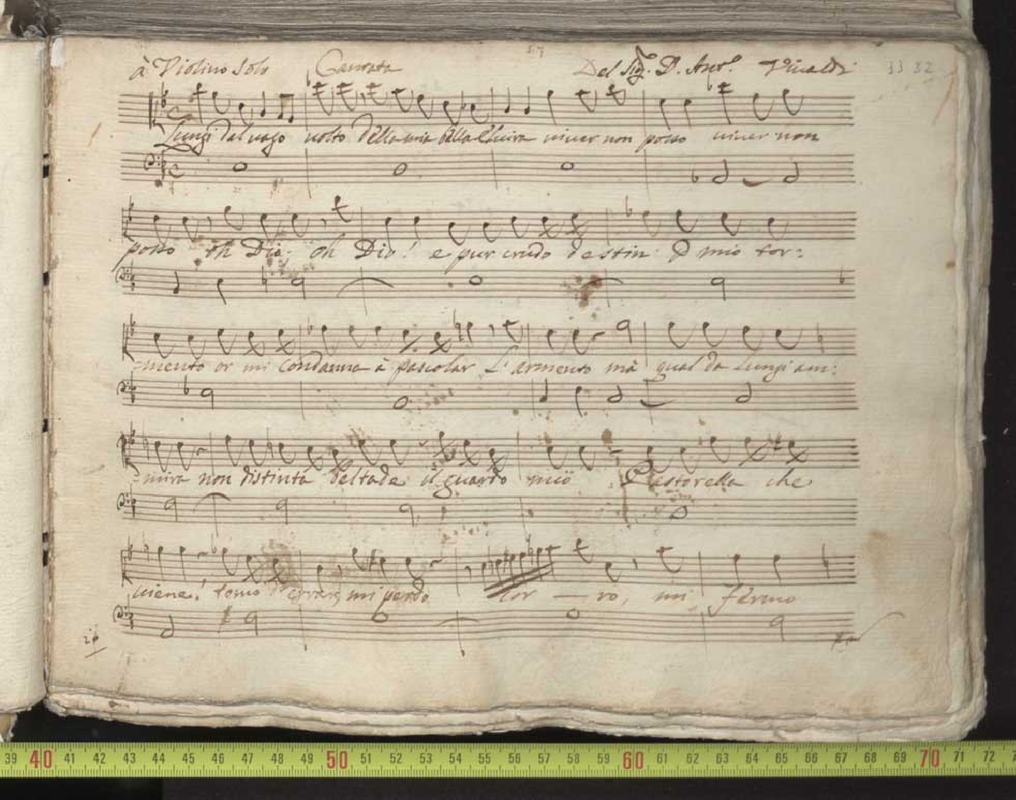 à Violino Solo Cantata Del Sig.r D. Ant.o Vivaldi 33 32
Lungi dal vago volto della mia bella Elvira viver non posso viver non
posso oh Dio: oh Dio! e pur crudo destin: d mio tor:
mento or mi condanna à pascolar L'armento mà qual da Lungi am:
mira non distinta beltade il guardo mio Pastorella che
viene! temo d'errar, mi perdo
cor — ro, mi fermo
39 40 41 42 43 44 45 46 47 48 49 50 51 52 53 54 55 56 57 58 59 60 61 62 63 64 65 66 67 68 69 70 71 72